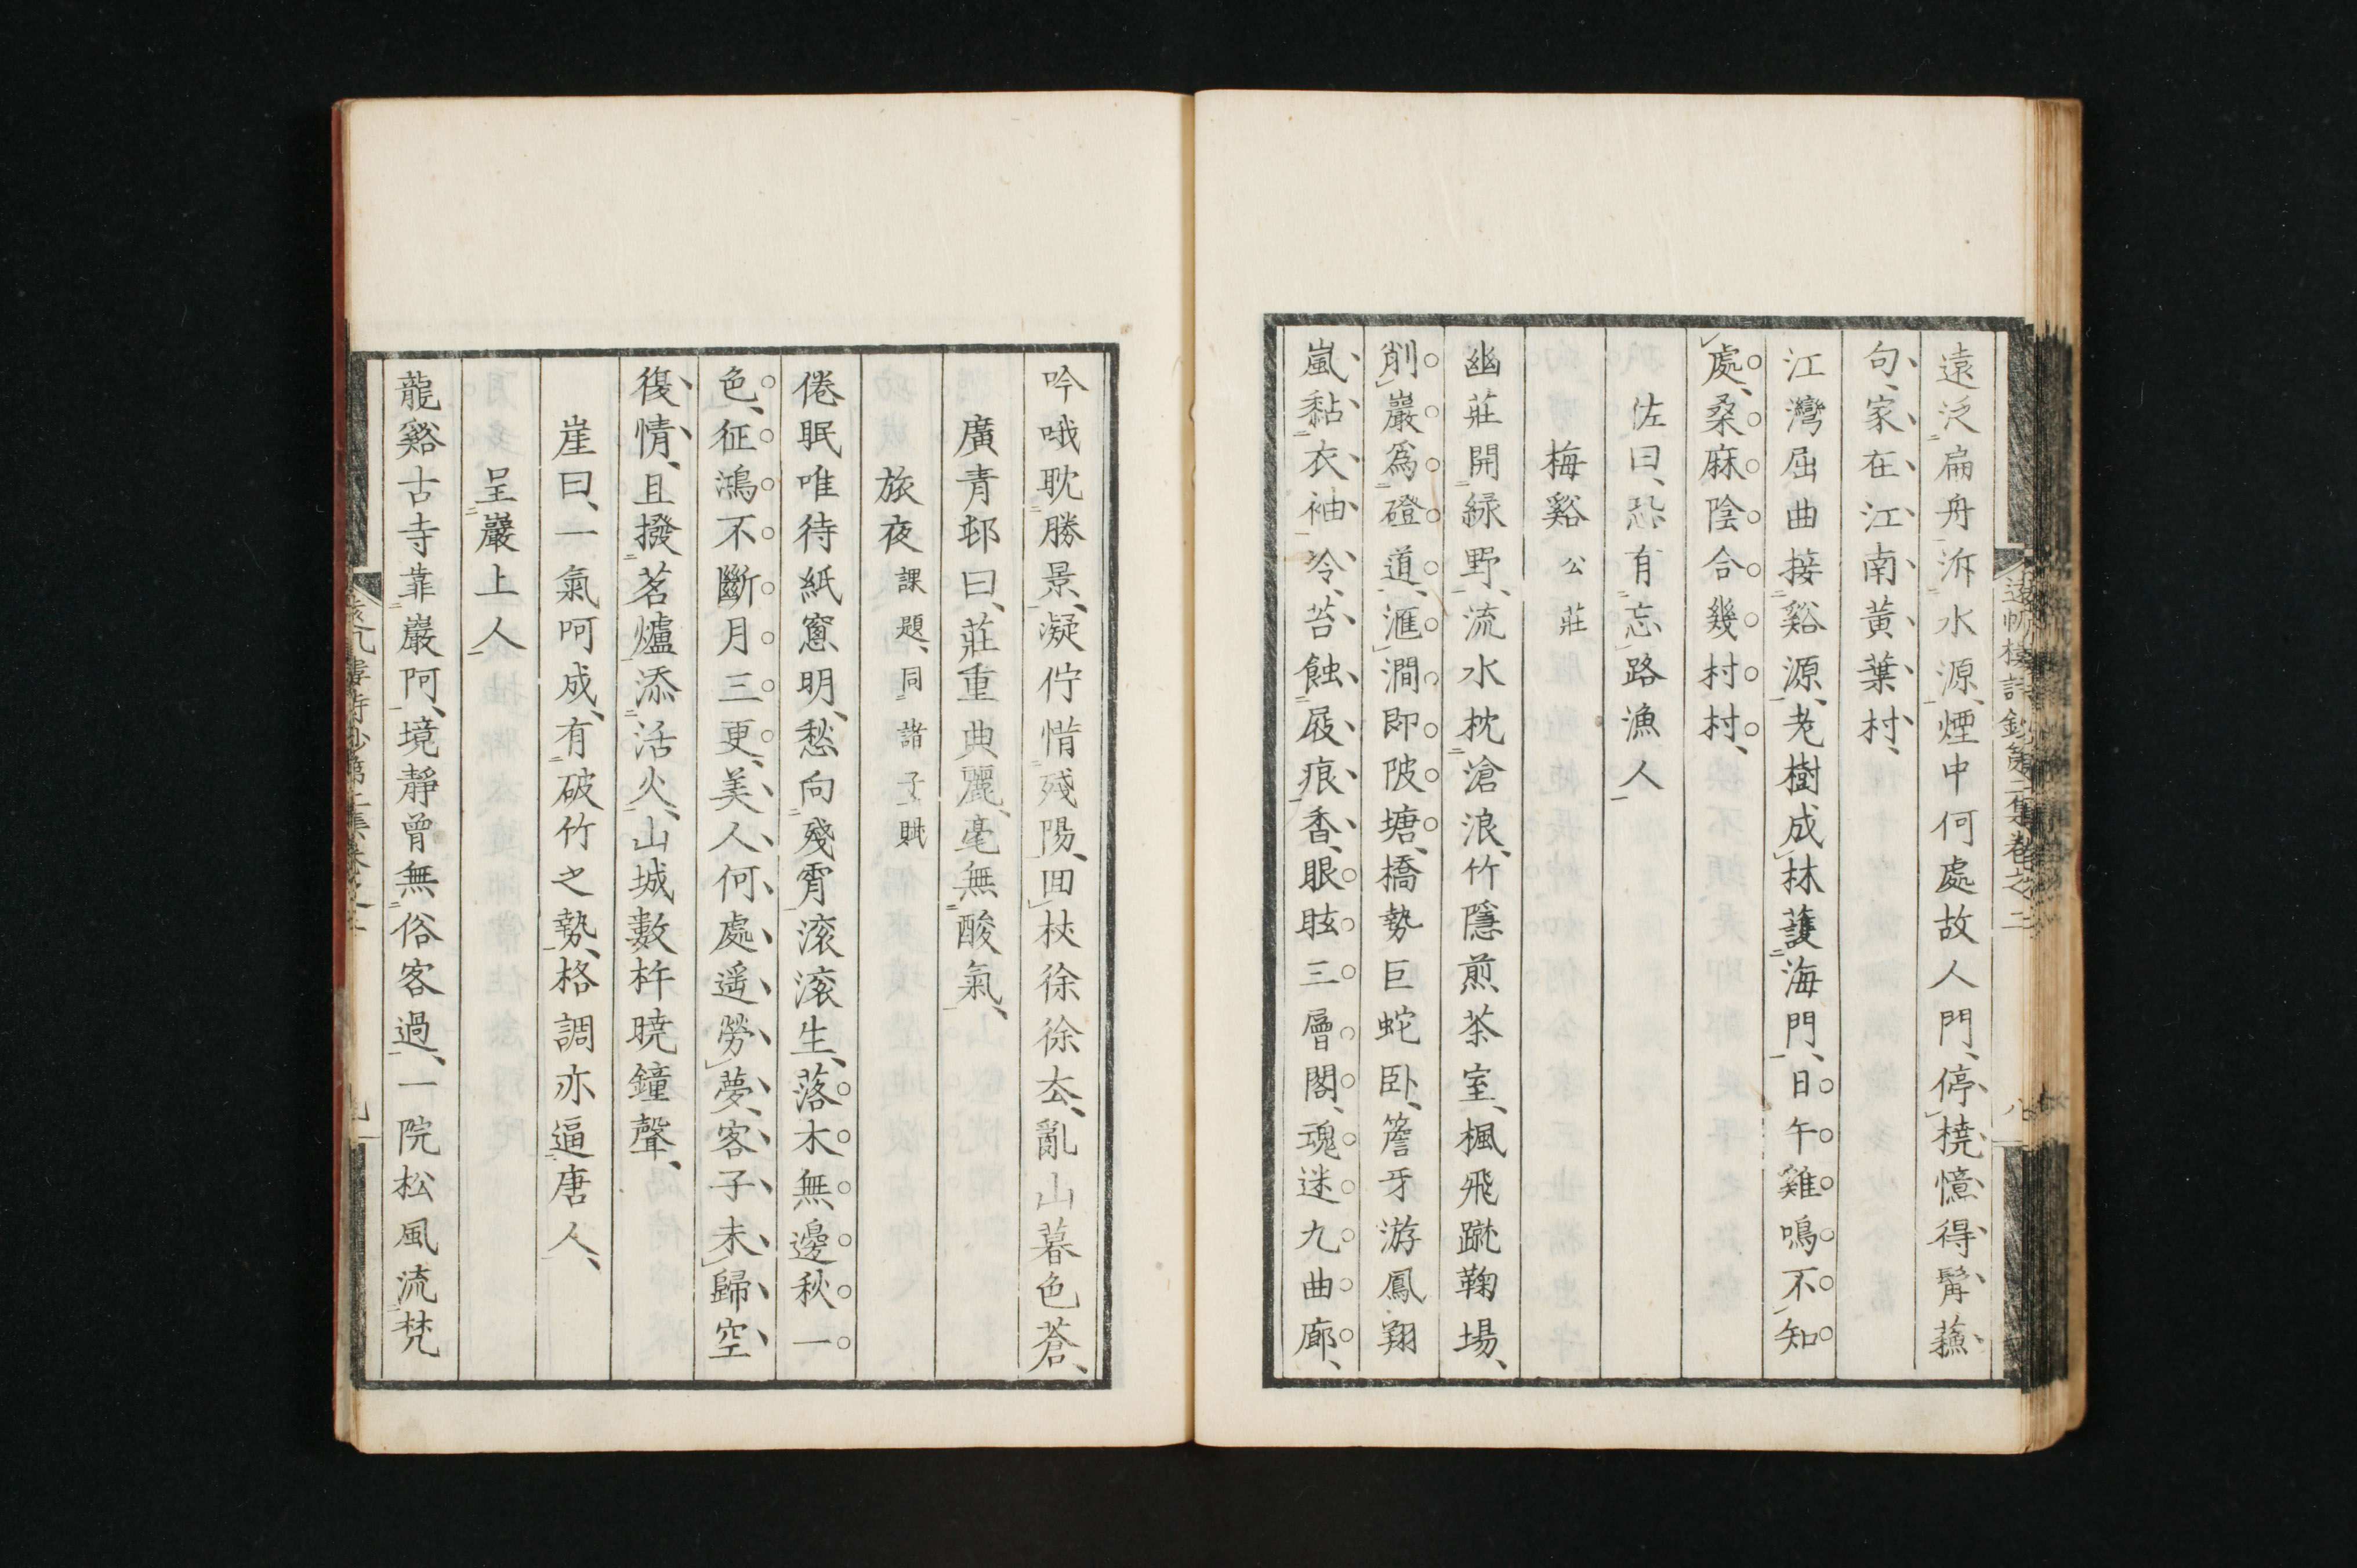 遠泛扁舟泝水源、煙中何處故人門、停橈憶得髯蘓
句、家在江南黃葉村、
江灣屈曲接谿源、老樹成林護海門、日午雞鳴不知
處、桑麻陰合幾村村、
佐曰、恐有忘路漁人
梅谿公莊
幽莊開緑野、流水枕滄浪、竹隱煎茶室、楓飛蹴鞠場、
削巖爲磴道、滙澗即陂塘、橋勢巨蛇卧、簷牙游鳳翔
嵐黏衣袖冷、苔蝕屐痕香、眼眩三層閣、魂迷九曲廊、
遠帆樓詩鈔第二集卷之二
八
吟哦耽勝景、凝佇惜殘陽、囬杖徐徐去、亂山暮色蒼、
廣青邨曰、莊重典麗、毫無酸氣、
旅夜課題、同諸子賦
倦眠唯待紙窻明、愁向殘宵滚滚生、落木無邊秋一
色、征鴻不斷月三更、美人何處遥勞夢、客子未歸空
復情、且撥茗爐添活火、山城數杵曉鐘聲、
崖曰、一氣呵成、有破竹之勢、格調亦逼唐人、
呈巖上人
龍谿古寺靠巖阿、境靜曾無俗客過、一院松風流梵